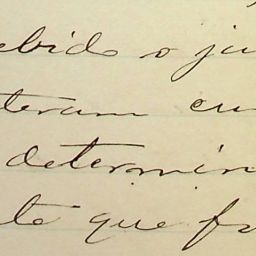 ebido o ju
teram cu
determin
te que fo